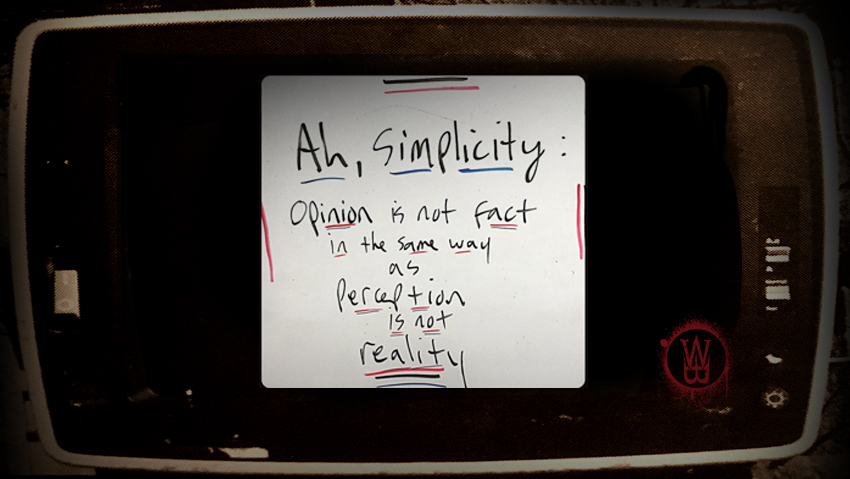 Ah, Simplicity:
Opinion is not fact
in the same way
as
Perception
is not
reality
WB